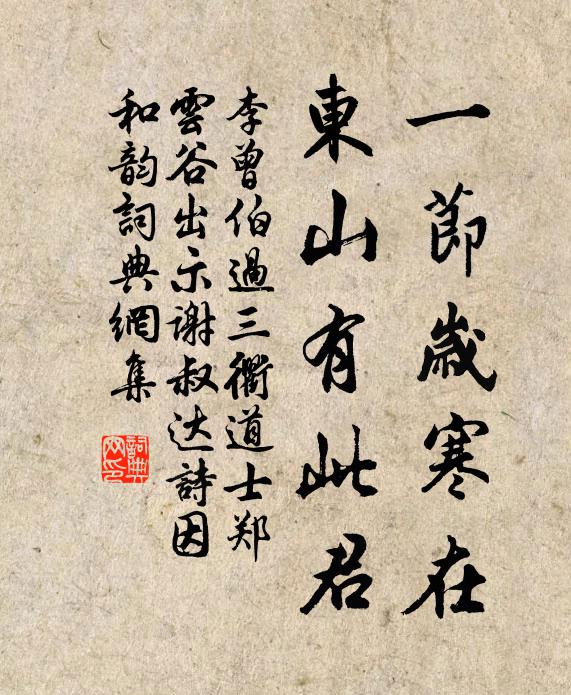 一節歲寒在
東山有此君
李曾伯過三衢道士郑
雲谷出示谢叔达詩因
和韵詞典網集
詞典网印